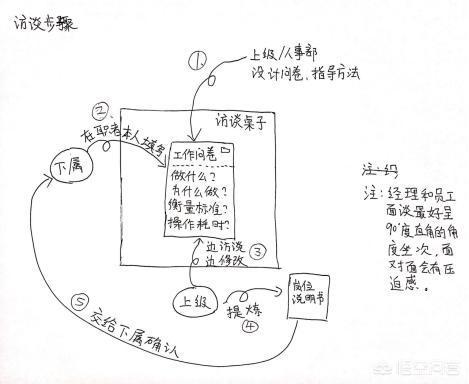 访谈步骤
①
上级/人事部
设计问卷、指导方法
②
在职者本人填写
下属
访谈桌子
工作问卷
做什么?
为什么做?
衡量标准?
操作耗时?
边访谈
边修改
③
上级
提炼
④
岗位
说明书
⑤交给下属确认
注:
注:经理和员工
面谈最好呈
90°度直角的角
度坐次,面
对面会有压
迫感。
悟空问答